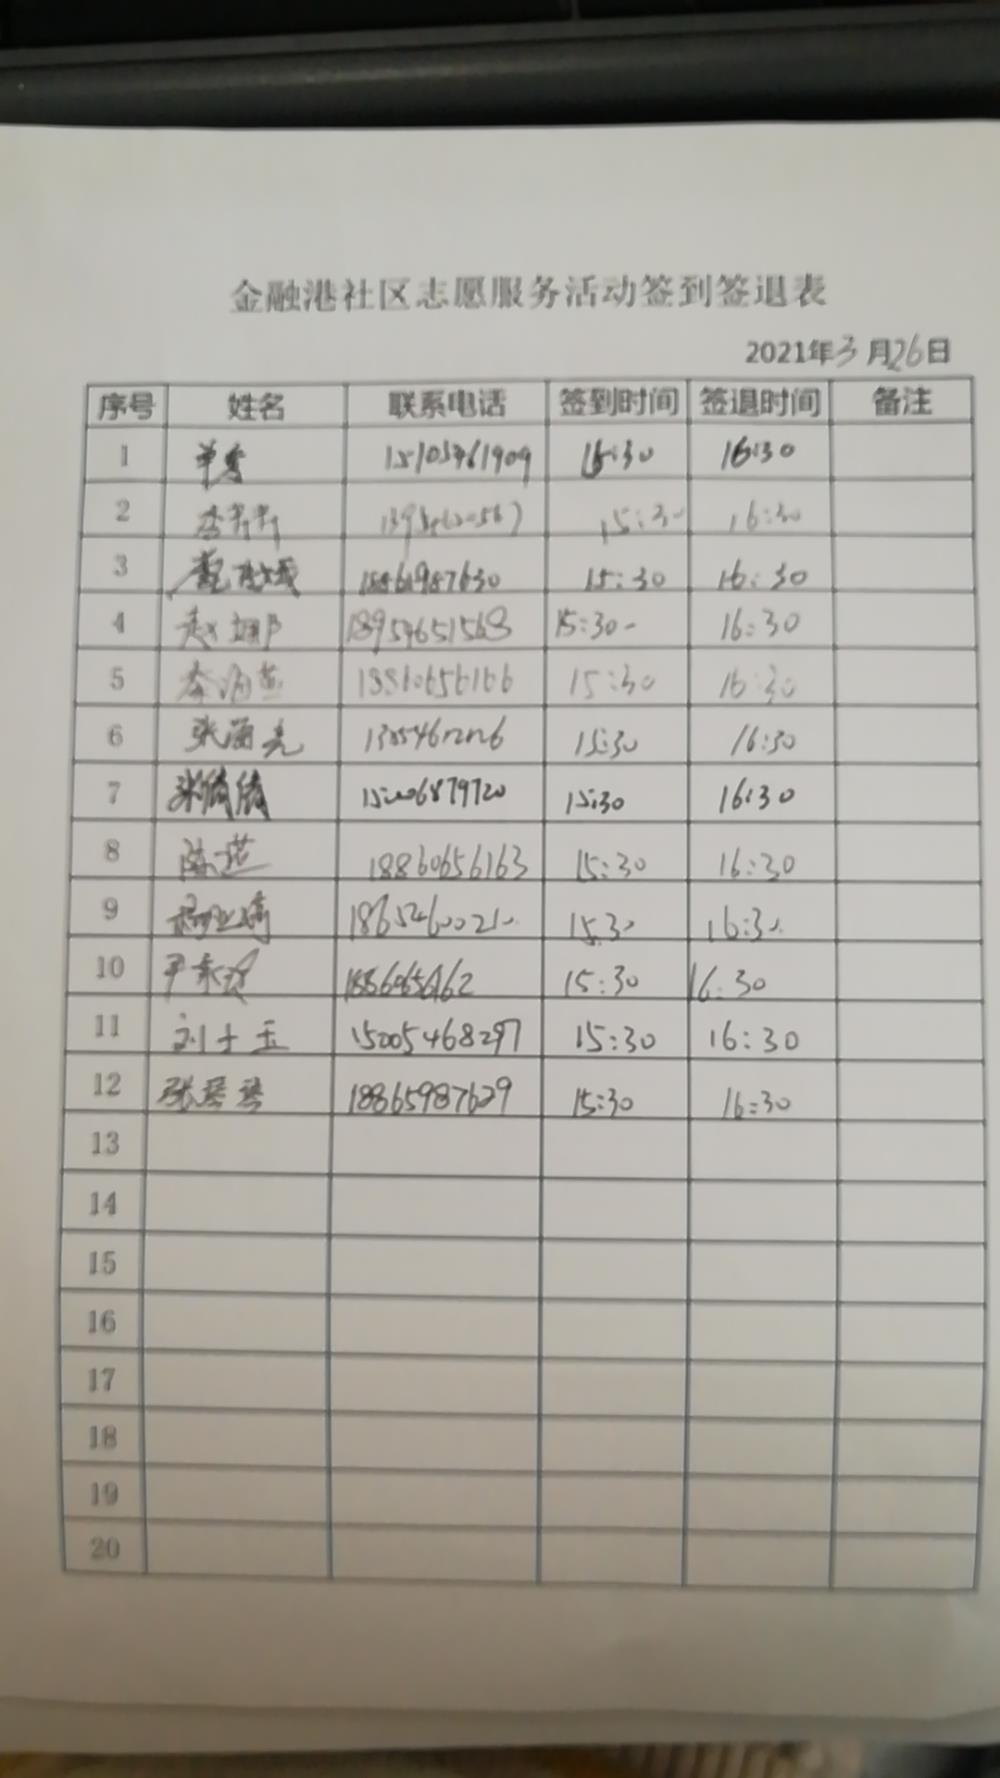 金融港社区志愿服务活动签到签退表
2021年3月26日
序号 姓名 联系电话 签到时间 签退时间 备注
1 15:30 16:30
2 15:30 16:30
3 15:30 16:30
4 赵娜 18954651568 15:30 16:30
5 李 18860656166 15:30 16:30
6 张海亮 15:30 16:30
7 张倩倩 15006879720 15:30 16:30
8 陈 18860656163 15:30 16:30
9 15:30 16:30
10 尹 18860656162 15:30 16:30
11 刘士玉 15005468297 15:30 16:30
12 张琴琴 18865987629 15:30 16:30
13
14
15
16
17
18
19
20